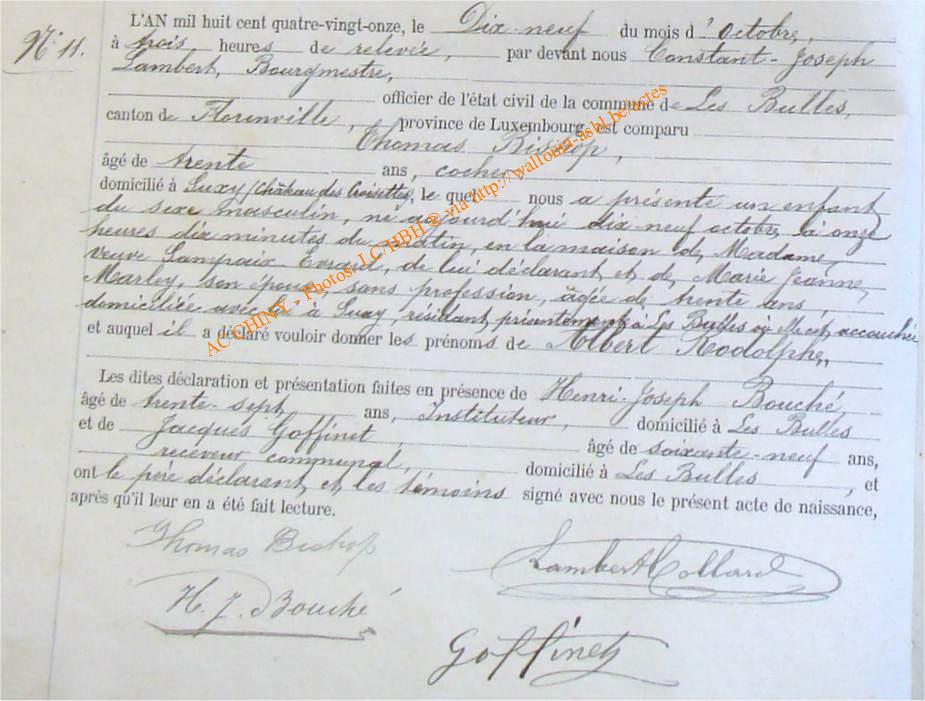 N° 11.
L'AN mil huit cent quatre-vingt-onze, le Dix-neuf du mois d'Octobre,
à trois heures de relevée, par devant nous Constant-Joseph
Lambert, Bourgmestre,
officier de l'état civil de la commune de Les Bulles,
canton de Florenville, province de Luxembourg est comparu
Thomas Bishop,
âgé de trente ans, cocher
domicilié à Suxy (Château des Croisettes), le quel nous a présenté un enfant
du sexe masculin, né aujourd'hui dix-neuf octobre à onze
heures dix minutes du matin, en la maison de Madame
veuve Lampaix Evrard, de lui déclarant et de Marie Jeanne
Marley, son épouse, sans profession, âgée de trente ans,
domiciliée avec lui à Suxy, résidant présentement à Les Bulles où elle est accouchée
et auquel il a déclaré vouloir donner les prénoms de Albert Rodolphe,
Les dites déclaration et présentation faites en présence de Henri-Joseph Bouché,
âgé de trente-sept ans, Instituteur, domicilié à Les Bulles
et de Jacques Goffinet, âgé de soixante-neuf ans,
receveur communal, domicilié à Les Bulles, et
ont le père déclarant et les témoins signé avec nous le présent acte de naissance,
après qu'il leur en a été fait lecture.
Thomas Bishop
Lambert Collard
H. J. Bouché
Goffinet
AC CHINY - Photos LC/HBH @ via http://wallonia-asbl.be/actes